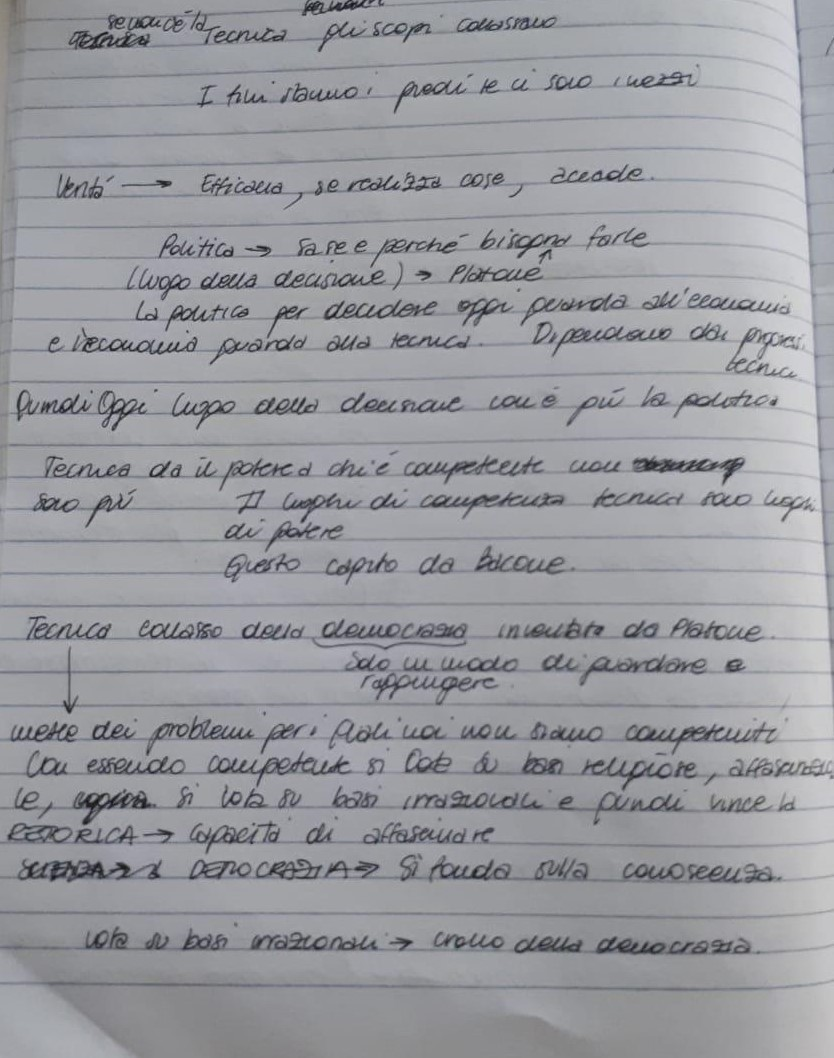 se non c'è la Tecnica gli scopi collassano
I fini stanno i piedi se ci sono i mezzi
Verità → Efficacia, se realizza cose, accade.
Politica → sa se e perché bisogna farle
(luogo della decisione) → Platone ↑
La politica per decidere oggi guarda all'economia
e l'economia guarda alla tecnica. Dipendono dai progressi
tecnici
Quindi Oggi luogo della decisione non è più la politica
Tecnica da il potere a chi è competente non
sono più I luoghi di competenza tecnica sono luoghi
di potere
Questo capito da Bacone.
Tecnica collasso della democrazia inventata da Platone.
Solo un modo di guardare e
raggiungere
mette dei problemi per i quali noi non siamo competenti
Non essendo competente si vota su basi religiose,
le, si vota su basi irrazionali e quindi vince la
RETORICA → Capacità di affascinare
DEMOCRAZIA → Si fonda sulla conoscenza.
vota su basi irrazionali → crollo della democrazia.